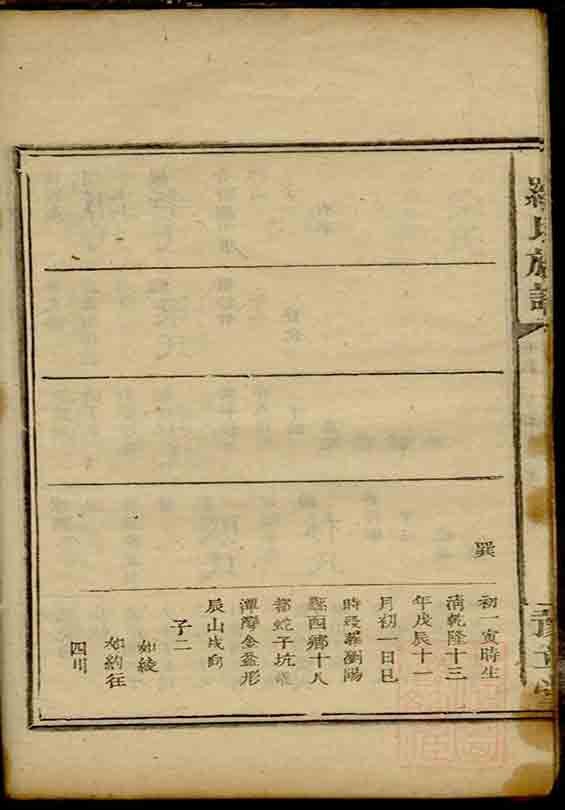 羅氏族譜
巽
初一寅時生
清乾隆十三
年戊辰十一
月初一日巳
時歿葬瀏陽
縣西鄉十八
都蛇子坑
潭灣金盆形
辰山戌向
子二
如綾
如約往
四川